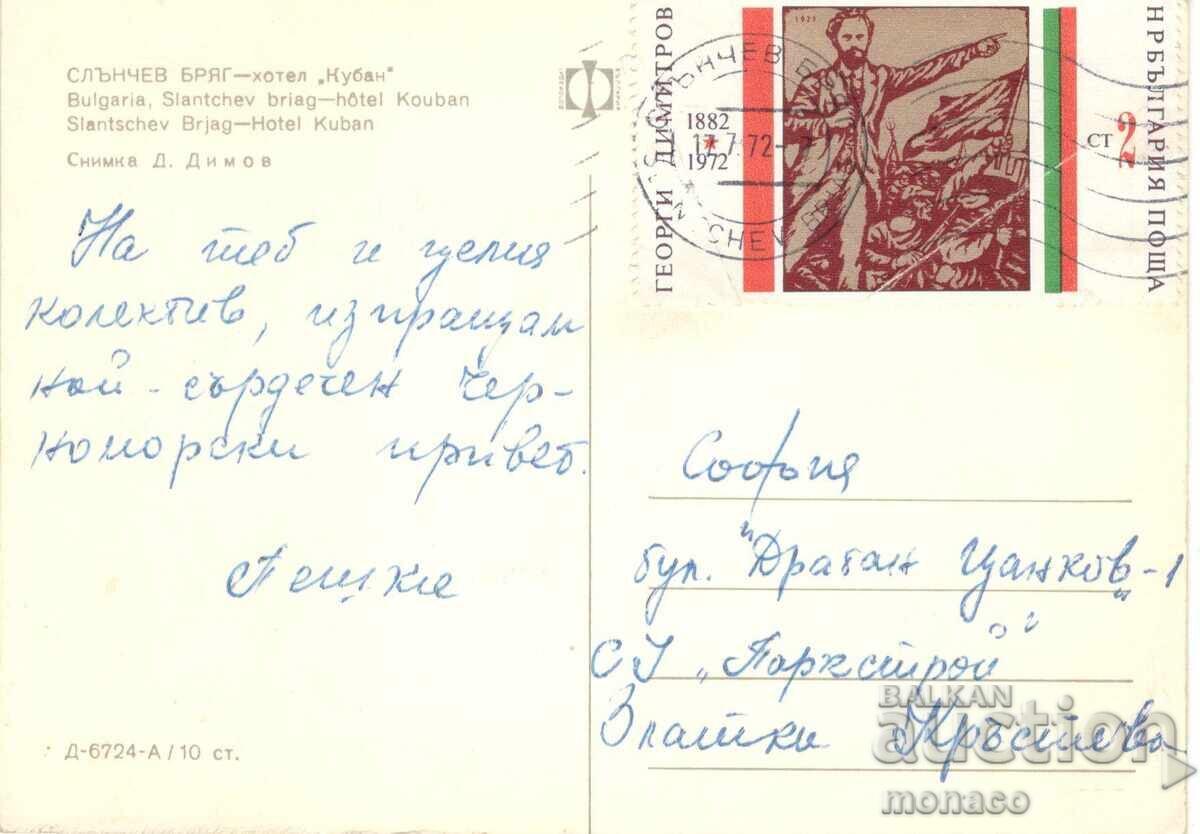 СЛЪНЧЕВ БРЯГ—хотел „Кубан"
Bulgaria, Slantchev briag—hôtel Kouban
Slantschev Brjag—Hotel Kuban
Снимка Д. Димов
На теб и целия
колектив, изпращам
най-сърдечен чер-
номорски привет.
Д-6724-А/10 ст.
ГЕОРГИ ДИМИТРОВ
1882
1972
1923
СТ
2
НР БЪЛГАРИЯ ПОЩА
СЛЪНЧЕВ
17.7.72
София
бул. "Драган Цанков"-1
СУ "Паркстрой"
Златки Кръстева
BALKAN
auction
monaco